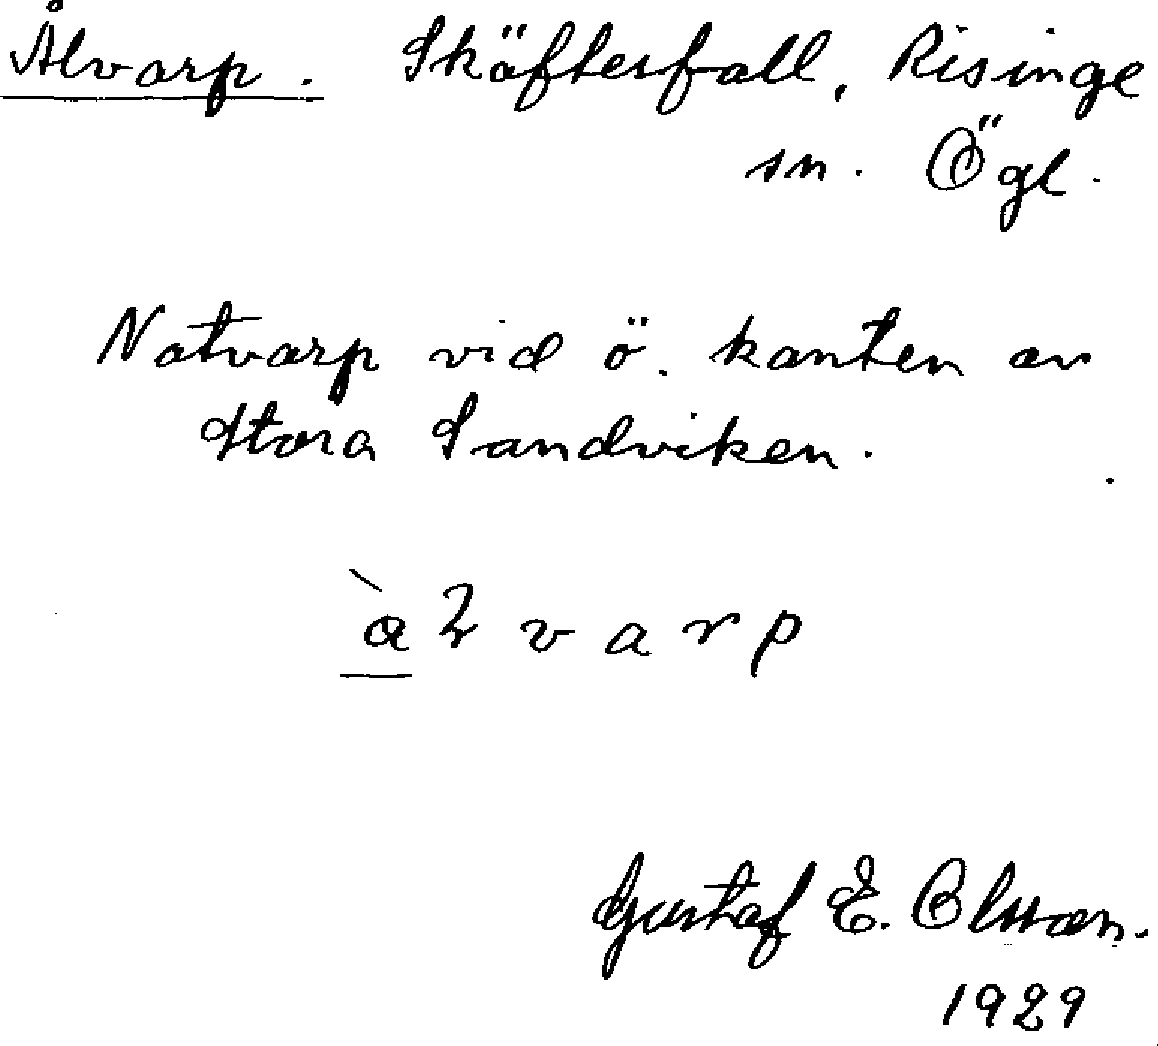 Ålvarp. Skäfterfall, Risinge
sn. Ögl.
Notvarp vid ö. kanten av
Stora Sandviken.
àlvarp
Gustaf E. Olsson.
1929